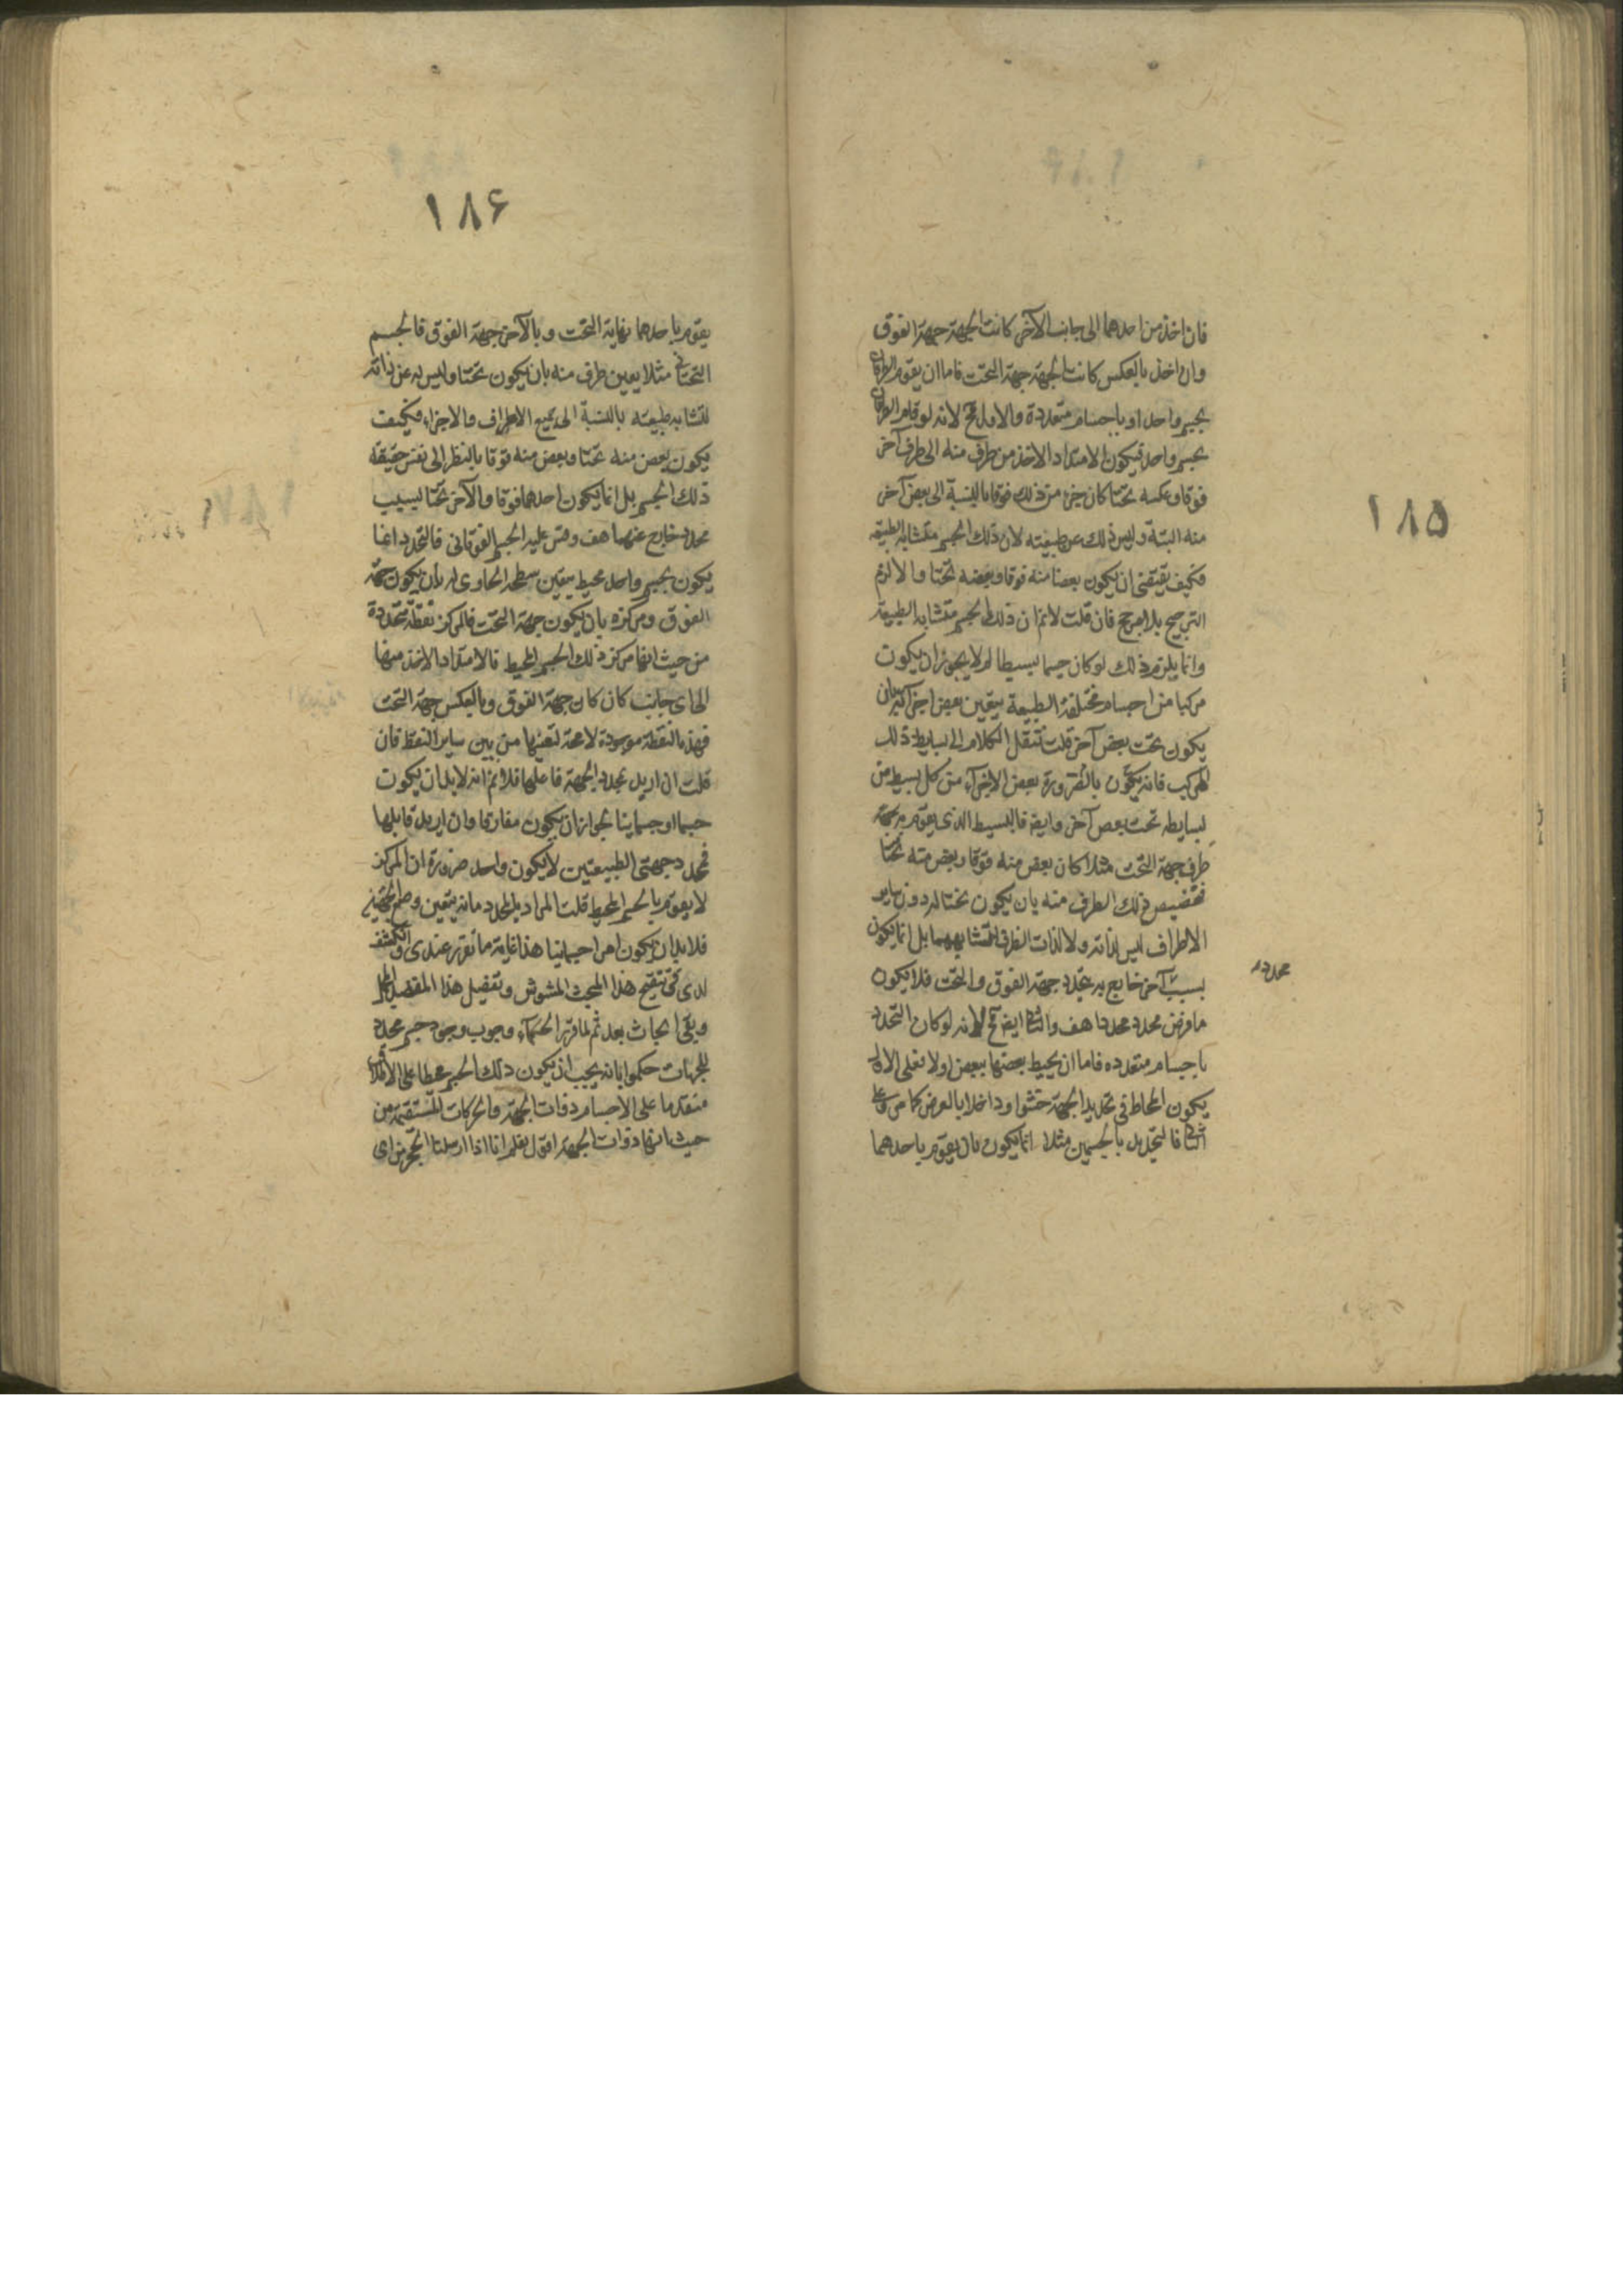 ١٨٥
فان اخذ من احدهما الى جانب الآخر كانت الجهة جهة الفوق
وان اخذ بالعكس كانت الجهة جهة التحت فاما ان يقوم الطرفان
بجسم واحد او باجسام متعددة والاول مح لانه لو قام الطرفان
بجسم واحد فيكون الامتداد الاخذ من طرف منه الى طرف آخر
فوقا وعكسه تحتا كان جزء من ذلك فوقا بالنسبة الى بعض آخر
منه البتة وليس ذلك عن طبيعته لان ذلك الجسم متشابه الطبيعة
فكيف يقتضى ان يكون بعضا منه فوقا وبعضه تحتا والا لزم
الترجيح بلا مرجح فان قلت لانم ان ذلك الجسم متشابه الطبيعة
وانما يلزم ذلك لو كان جسما بسيطا لم لا يجوز ان يكون
مركبا من اجسام مختلفة الطبيعة يتعين بعض اجزائه بان
يكون تحت بعض آخر قلت ننقل الكلام الى بسايط ذلك
المركب فانه يكون بالضرورة بعض الاجزاء من كل بسيط من
بسايطه تحت بعض آخر وايضا فالبسيط الذى يقوم به
طرف جهة التحت مثلا كان بعض منه فوقا وبعض منه تحتا
فتخصيص ذلك الطرف منه بان يكون تحتا له دون ساير
الاطراف ليس لذاته ولا لذات الطرف لتشابههما بل انما يكون
بسبب آخر خارج به يتحدد جهة الفوق والتحت فلا يكون
محدده
ما فرض محددا محددا هف والثانى ايضا مح لانه لو كان التحدد
باجسام متعدده فاما ان يحيط بعضها ببعض اولا فعلى الاول
يكون المحاط فى تحديد الجهة حشوا وداخلا بالعرض كما مر وعلى
الثانى فالتحديد بالجسمين مثلا انما يكون بان يقوم باحدهما
١٨۶
يقوم باحدهما نهاية التحت وبالآخر جهة الفوق فالجسم
التحتانى مثلا يعين طرف منه بان يكون تحتا وليس له عن ذاته
لتشابه طبيعته بالنسبة الى جميع الاطراف والاجزاء فكيف
يكون بعض منه تحتا وبعض منه فوقا بالنظر الى نفس حقيقة
ذلك الجسم بل انما يكون احدهما فوقا والآخر تحتا بسبب
محدد خارج عنهما هف وقس عليه الجسم الفوقانى فالتحدد انما
يكون بجسم واحد محيط يتعين سطحه الحاوى له بان يكون جهة
الفوق ومركزه بان يكون جهة التحت فالمركز نقطة متحددة
من حيث انها مركز ذلك الجسم المحيط فالامتداد الاخذ منها
الى اى جانب كان كان جهة الفوق وبالعكس جهة التحت
فهذه النقطة موجودة لا محة لتعينها من بين ساير النقط فان
قلت ان اريد بمحدد الجهة فاعلها فلا نم انه لا بد ان يكون
جسما او جسمانيا لجواز ان يكون مفارقا وان اريد قابلها
فمحدد جهتى الطبيعتين لا يكون واحد ضرورة ان المركز
لا يقوم بالجسم المحيط قلت المراد بالمحدد ما به يتعين وضع الجهتين
فلا بد ان يكون امرا جسمانيا هذا غاية ما تقرر عندى وانكشف
لدى فى تنقيح هذا المبحث المشوش وتفصيل هذا المقصد المجمل
وبقى ابحاث بعد ثم لما قرر الحكماء وجوب وجود جسم محدد
للجهات حكموا بانه يجب ان يكون ذلك الجسم محيطا على الافلاك
متقدما على الاجسام ذوات الجهة والحركات المستقيمة من
حيث انها ذوات الجهة اقول نعلم انا اذا ارسلنا الحجر من اى